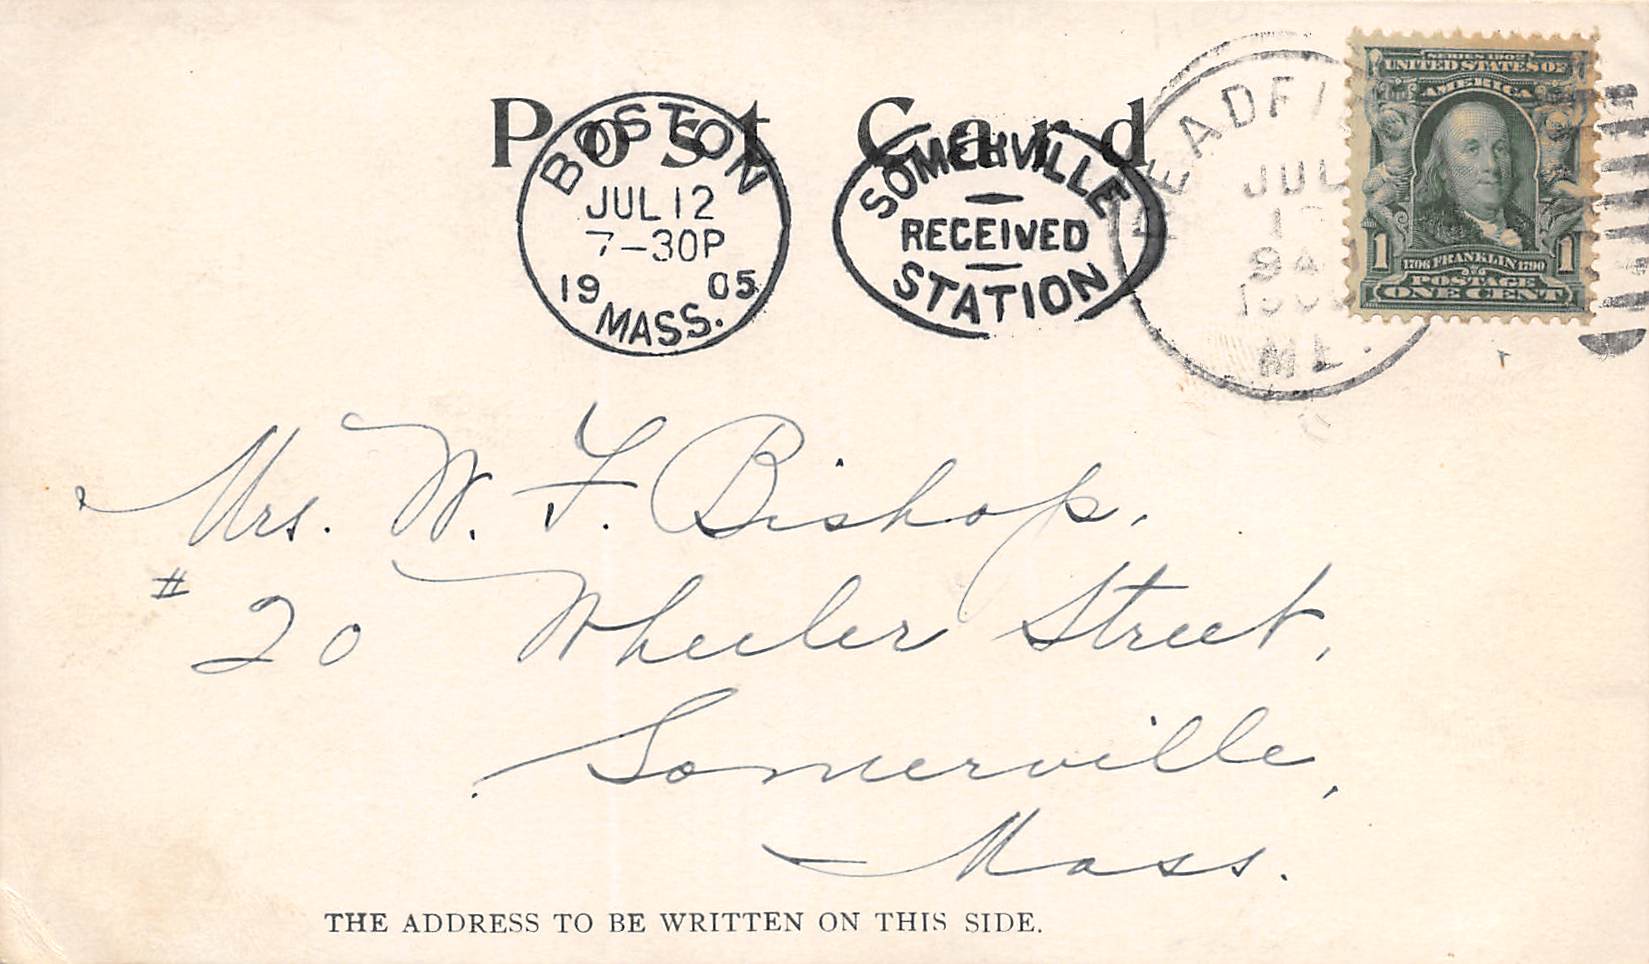 Post Card
BOSTON
JUL 12
7-30P
1905
MASS.
SOMERVILLE
RECEIVED
STATION
READFI
JUL
ME.
SERIES 1902
UNITED STATES OF
AMERICA
1 1
1706 FRANKLIN 1790
POSTAGE
ONE CENT
Mrs. W. F. Bishop,
# 20 Wheeler Street,
Somerville,
Mass.
THE ADDRESS TO BE WRITTEN ON THIS SIDE.